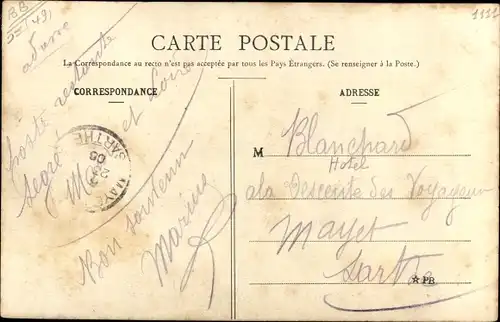 1111
CARTE POSTALE
La Correspondance au recto n'est pas acceptée par tous les Pays Étrangers. (Se renseigner à la Poste.)
CORRESPONDANCE
ADRESSE
poste restante
Segré et Loire
Bon souvenir
Marine
SARTHE
05
M Blanchard
Hotel
a la Descente des Voyageur
Mayet
Sart he
PB